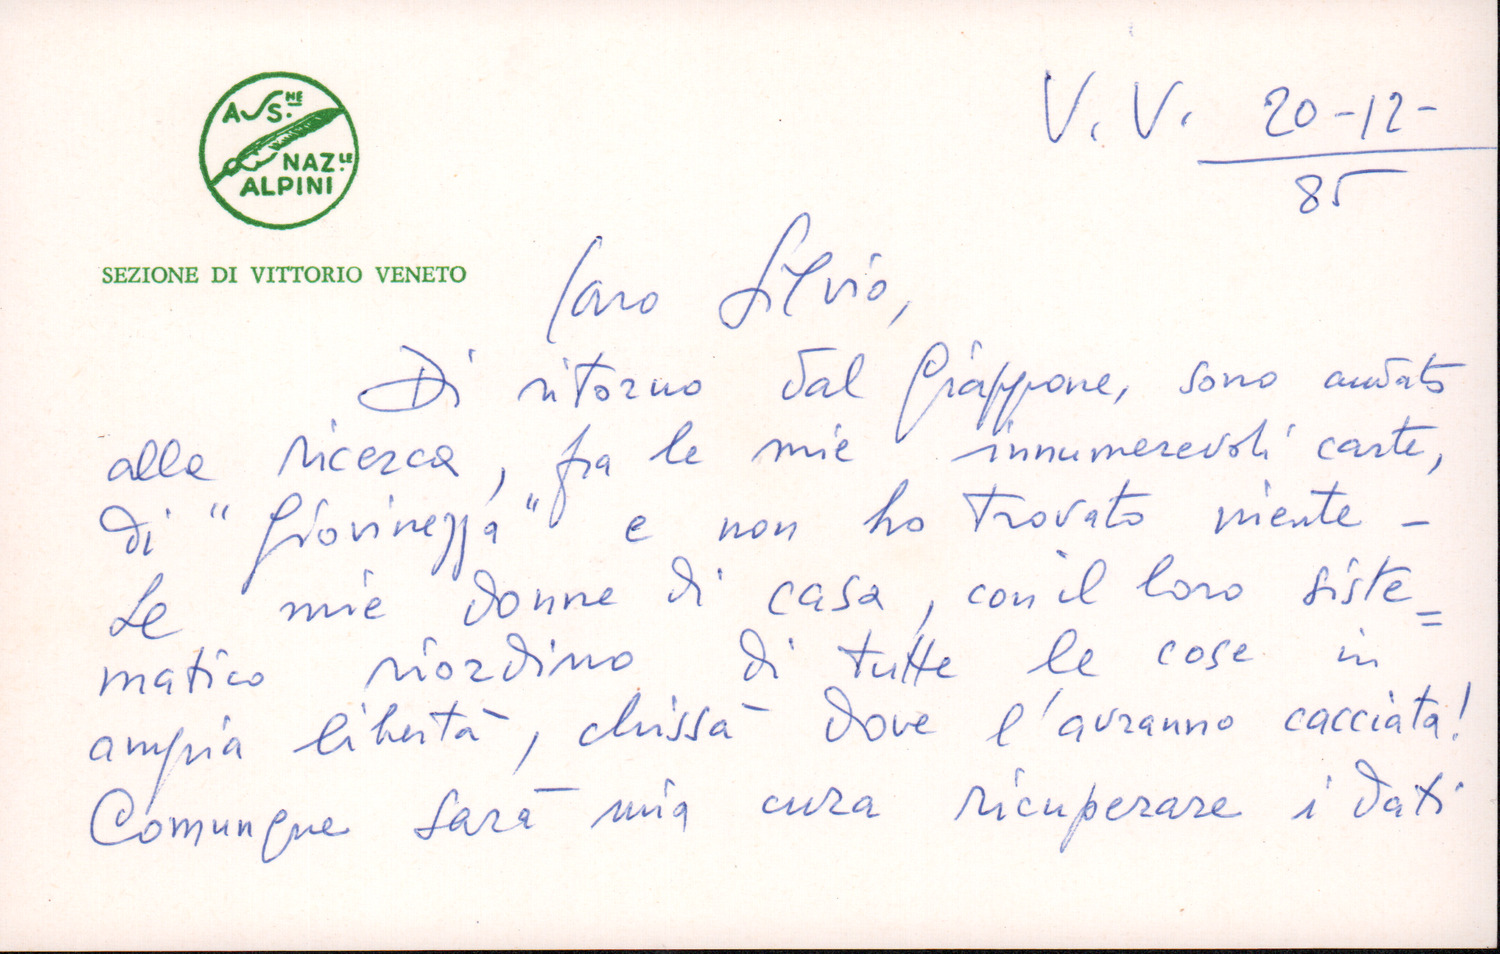 ASS.NE
NAZ.LE
ALPINI
SEZIONE DI VITTORIO VENETO
V. V. 20-12-
85
Caro Silvio,
Di ritorno dal Giappone, sono andato
alla ricerca, fra le mie innumerevoli carte,
di "Giovinezza" e non ho trovato niente -
Le mie donne di casa, con il loro siste=
matico riordino di tutte le cose in
ampia libertà, chissà dove l'avranno cacciata!
Comunque sarà mia cura ricuperare i dati